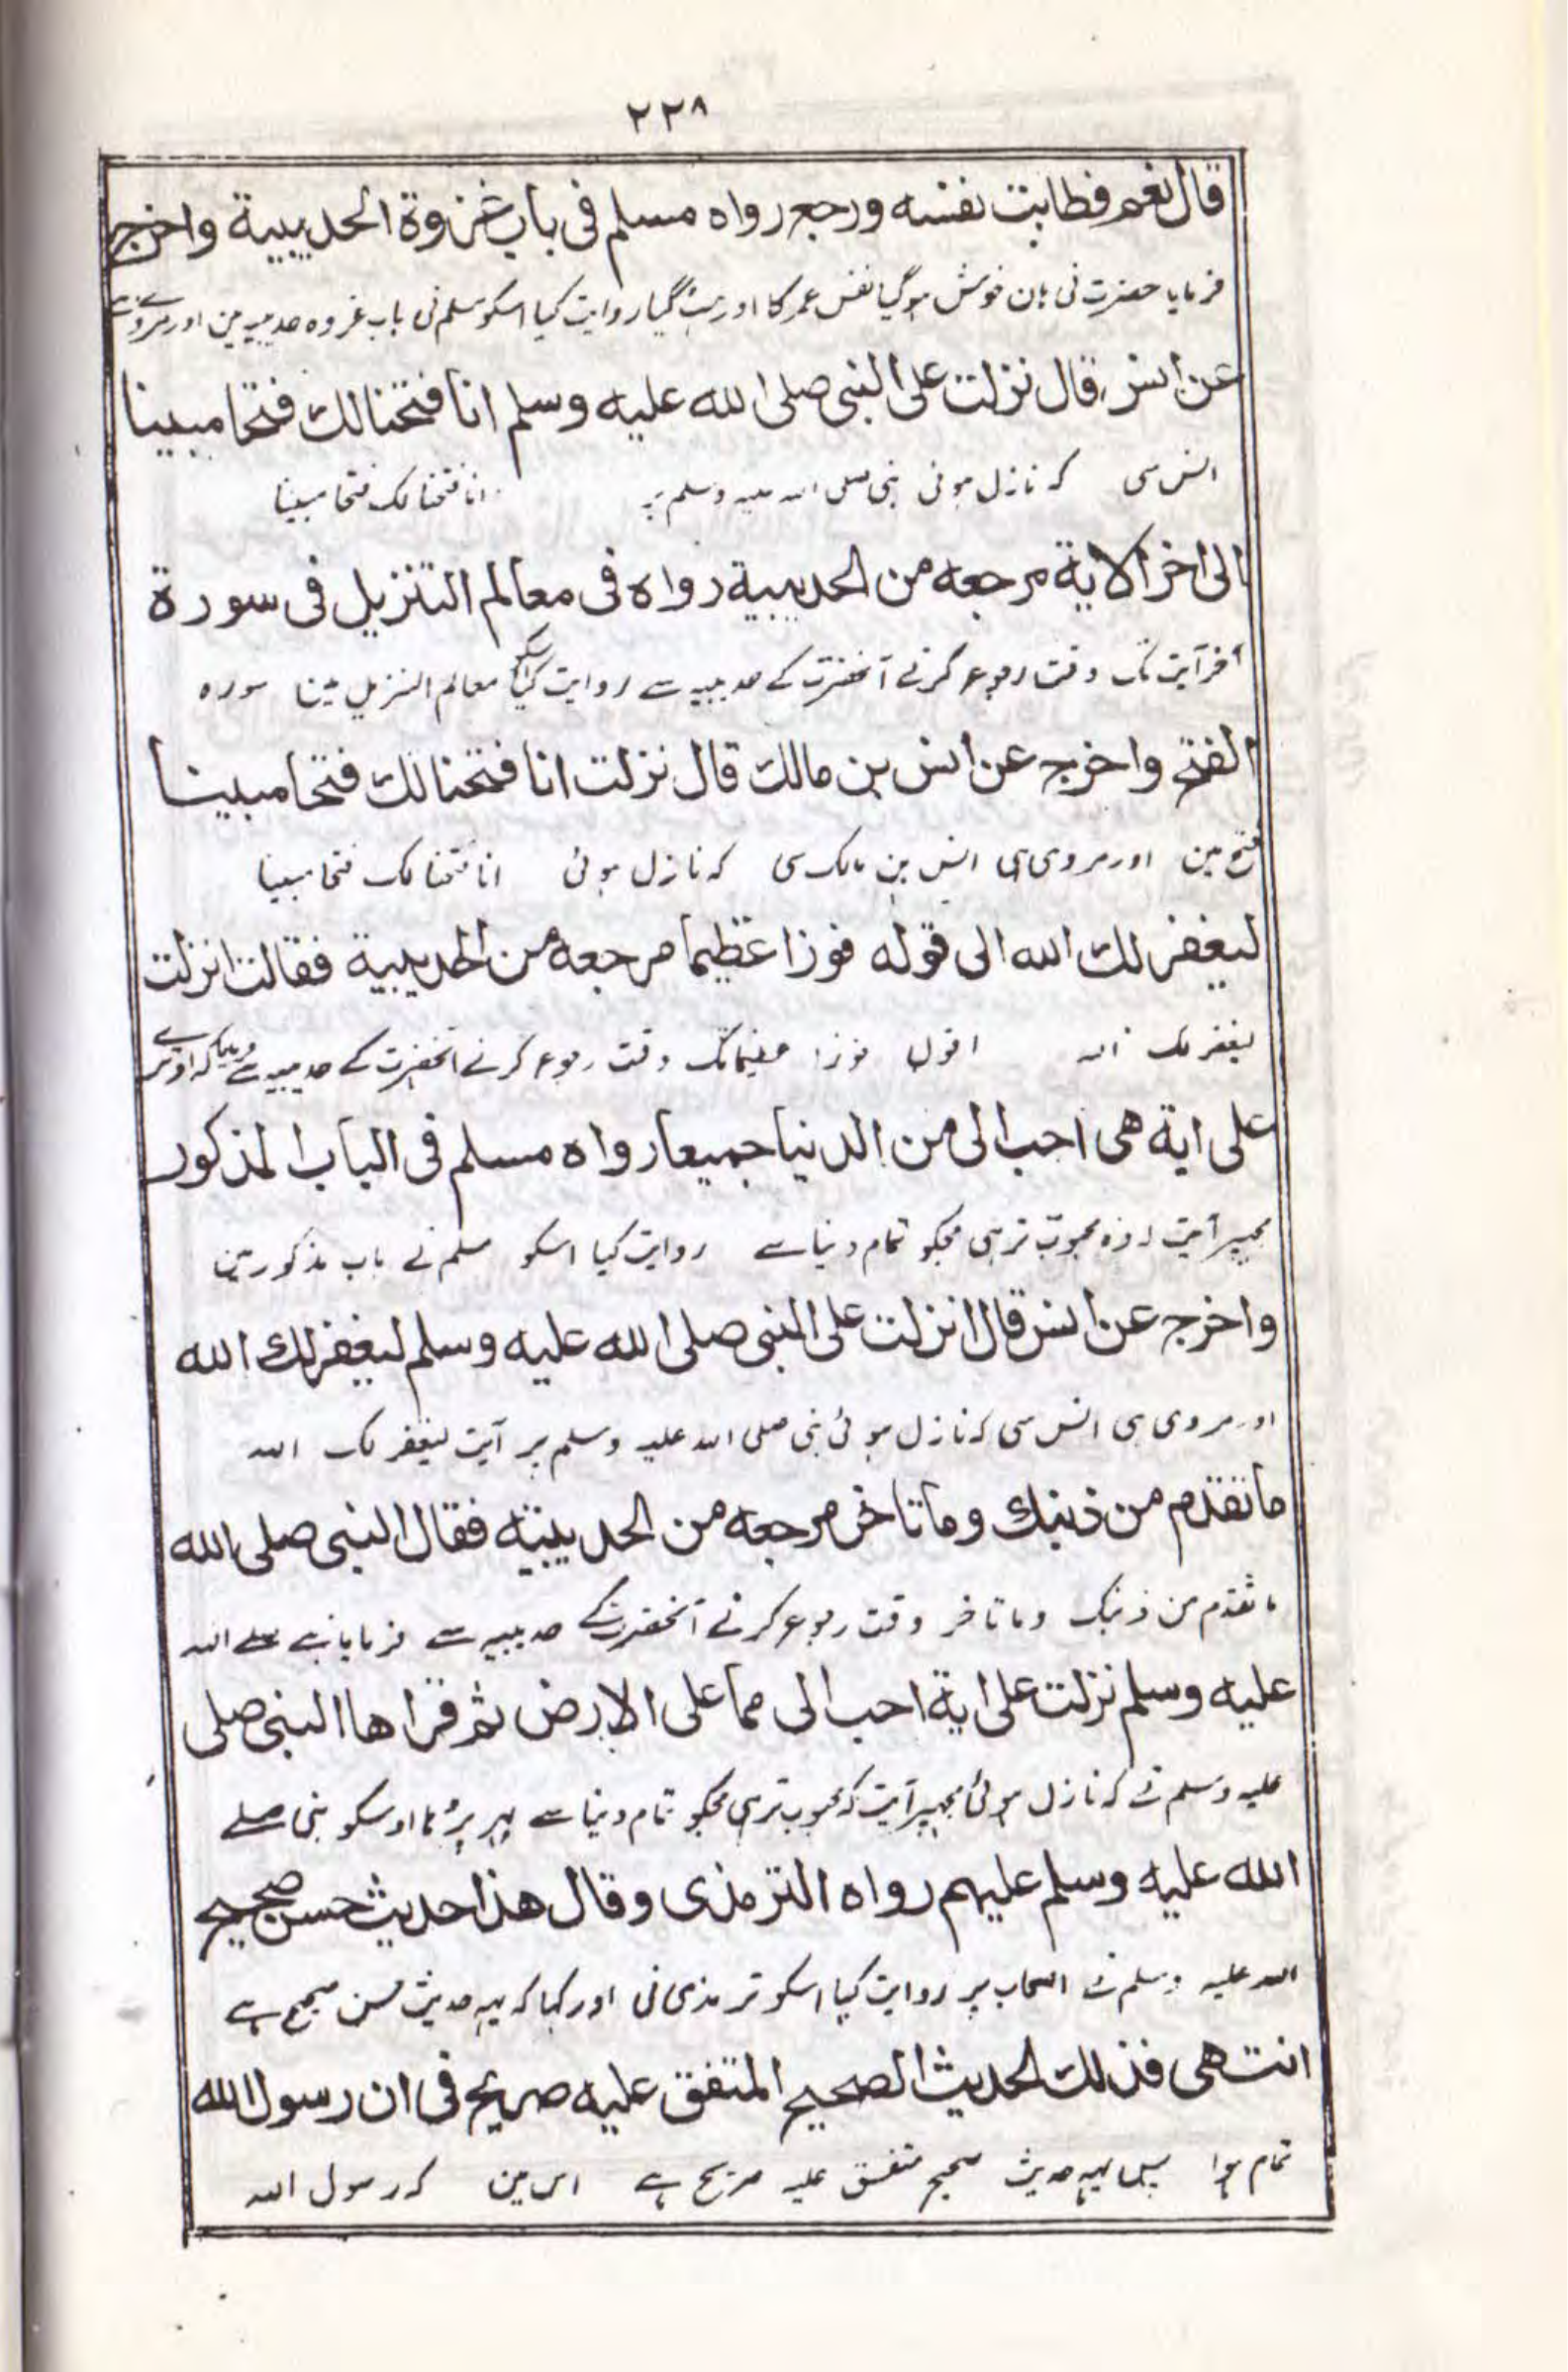 ٢٢٨
قال نعم فطابت نفسه ورجع رواه مسلم فی باب غزوة الحدیبیة واخرج
فرمایا حضرت نی ہان خوش ہوگیا نفس عمر کا اور ہٹ گیا روایت کیا اسکو مسلم نی باب غزوہ حدیبیہ مین اور مروی ہے
عن انس قال نزلت علی النبی صلی الله علیه وسلم انا فتحنا لك فتحا مبینا
انس سی کہ نازل ہوئی نبی صلی اللہ علیہ وسلم پر انا فتحنا لک فتحا مبینا
الی اخر الایة مرجعه من الحدیبیة رواه فی معالم التنزیل فی سورة
آخر آیت تک وقت رجوع کرنے آنحضرت کے حدیبیہ سے روایت کیا اسکو معالم التنزیل مین سورہ
الفتح واخرج عن انس بن مالك قال نزلت انا فتحنا لك فتحا مبینا
فتح مین اور مروی ہی انس بن مالک سی کہ نازل ہوئی انا فتحنا لک فتحا مبینا
لیغفر لك الله الی قوله فوزا عظیما مرجعه من الحدیبیة فقالت انزلت
لیغفر لک اللہ اقول فوزا عظیما تک وقت رجوع کرنے آنحضرت کے حدیبیہ سے
علی ایة هی احب الی من الدنیا جمیعا رواه مسلم فی الباب المذکور
مجہپر آیت محبوب تر ہی مجکو تمام دنیا سے روایت کیا اسکو مسلم نے باب مذکور مین
واخرج عن انس قال انزلت علی النبی صلی الله علیه وسلم لیغفر لك الله
اور مروی ہی انس سی کہ نازل ہوئی نبی صلی اللہ علیہ وسلم پر آیت لیغفر لک اللہ
ما تقدم من ذنبك وما تاخر مرجعه من الحدیبیته فقال النبی صلی الله
ما تقدم من ذنبک وما تاخر وقت رجوع کرنے آنحضرت کے حدیبیہ سے فرمایا نبے صلے اللہ
علیه وسلم نزلت علی ایة احب الی مما علی الارض ثم قراها النبی صلی
علیہ وسلم نے کہ نازل ہوئی مجہپر آیت کہ محبوب تر ہی مجکو تمام دنیا سے پہر پڑہا اوسکو نبی صلے
الله علیه وسلم علیهم رواه الترمذی وقال هذا حدیث حسن صحیح
اللہ علیہ وسلم نے اصحاب پر روایت کیا اسکو ترمذی نی اور کہا کہ یہہ حدیث حسن صحیح ہے
انتهی فذلك الحدیث الصحیح المتفق علیه صریح فی ان رسول الله
تمام ہوا پس یہہ حدیث صحیح متفق علیہ صریح ہے اس مین کہ رسول اللہ